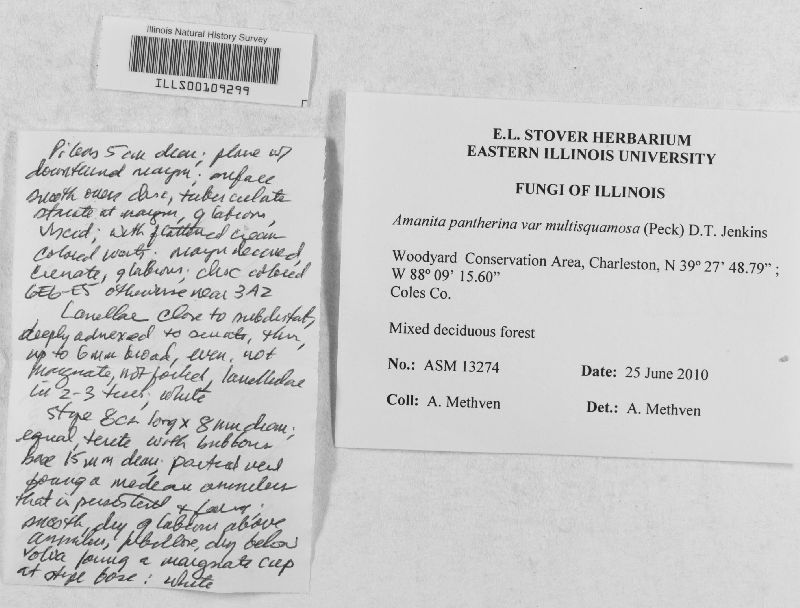 Illinois Natural History Survey
ILLS00109299
Pileus 5 cm diam; plane w/
downturned margin; surface
smooth over disc, tuberculate
striate at margin, glabrous,
viscid; with flattened cream
colored warts; margin decurved,
crenate, glabrous; disc colored
6E6-E5 otherwise near 3A2
Lamellae close to subdistant,
deeply adnexed to sinuate, thin,
up to 6 mm broad, even, not
marginate, not forked, lamellulae
in 2-3 tiers; white
Stipe 8 cm long x 8 mm diam;
equal, terete with bulbous
base 15 mm diam; partial veil
forming a median annulus
that is persistent &
smooth, dry glabrous above
annulus, fibrillose, dry below
volva forming a marginate cup
at stipe base; white
E.L. STOVER HERBARIUM
EASTERN ILLINOIS UNIVERSITY
FUNGI OF ILLINOIS
Amanita pantherina var multisquamosa (Peck) D.T. Jenkins
Woodyard Conservation Area, Charleston, N 39º 27' 48.79" ;
W 88º 09' 15.60"
Coles Co.
Mixed deciduous forest
No.: ASM 13274 Date: 25 June 2010
Coll: A. Methven Det.: A. Methven